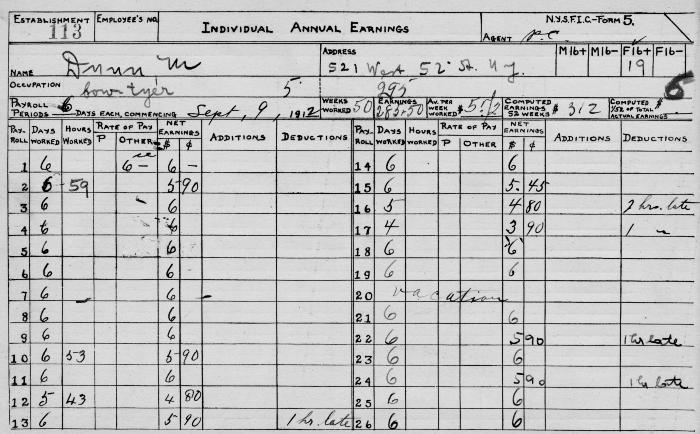 ESTABLISHMENT 113 EMPLOYEE'S NO. INDIVIDUAL ANNUAL EARNINGS N.Y.S.F.I.C.-FORM 5.
AGENT P.C.
NAME Dunn M ADDRESS 521 West 52 St. N.Y. M16+ M16- F16+ 19 F16-
OCCUPATION bow tyer 5 295 6
PAYROLL PERIODS 6 DAYS EACH, COMMENCING Sept, 9, 1912 WEEKS WORKED 50 EARNINGS $ 283.50 AV. PER WEEK WORKED $ COMPUTED EARNINGS 52 WEEKS $ 312 COMPUTED 1/52 OF TOTAL ACTUAL EARNINGS $
PAY-ROLL DAYS WORKED HOURS WORKED RATE OF PAY P OTHER NET EARNINGS $ ¢ ADDITIONS DEDUCTIONS PAY-ROLL DAYS WORKED HOURS WORKED RATE OF PAY P OTHER NET EARNINGS $ ¢ ADDITIONS DEDUCTIONS
1 6 6 – 6 – 14 6 6
2 6 -59 5 90 15 6 5. 45
3 6 6 16 5 4 80 2 hrs. late
4 6 6 17 4 3 90 1 "
5 6 6 18 6 6
6 6 6 19 6 6
7 6 6 – 20 vacation
8 6 6 21 6 6
9 6 6 22 6 5 90 1 hr late
10 6 53 5 90 23 6 6
11 6 6 24 6 5 90 1 hr late
12 5 43 4 80 25 6 6
13 6 5 90 1 hr. late 26 6 6